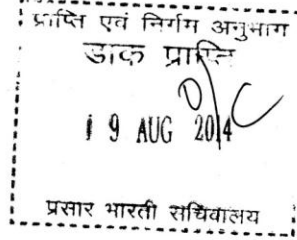 प्राप्ति एवं निर्गम अनुभाग
डाक प्राप्ति
D/C
19 AUG 2014
प्रसार भारती सचिवालय